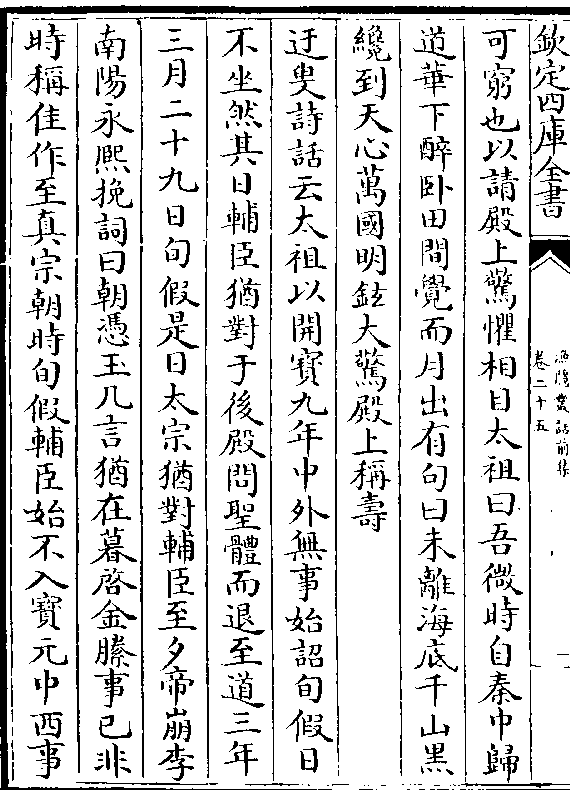 欽定四庫全書
漁隱叢話前集
卷二十五
可窮也以請殿上驚懼相目太祖曰吾微時自秦中歸
道華下醉卧田間覺而月出有句曰未離海底千山黒
纔到天心萬國明鉉大驚殿上稱壽
迂叟詩話云太祖以開寶九年中外無事始詔旬假日
不坐然其日輔臣猶對于後殿問聖體而退至道三年
三月二十九日旬假是日太宗猶對輔臣至夕帝崩李
南陽永熙挽詞曰朝憑玉几言猶在暮啓金縢事已非
時稱佳作至真宗朝時旬假輔臣始不入寶元中西事